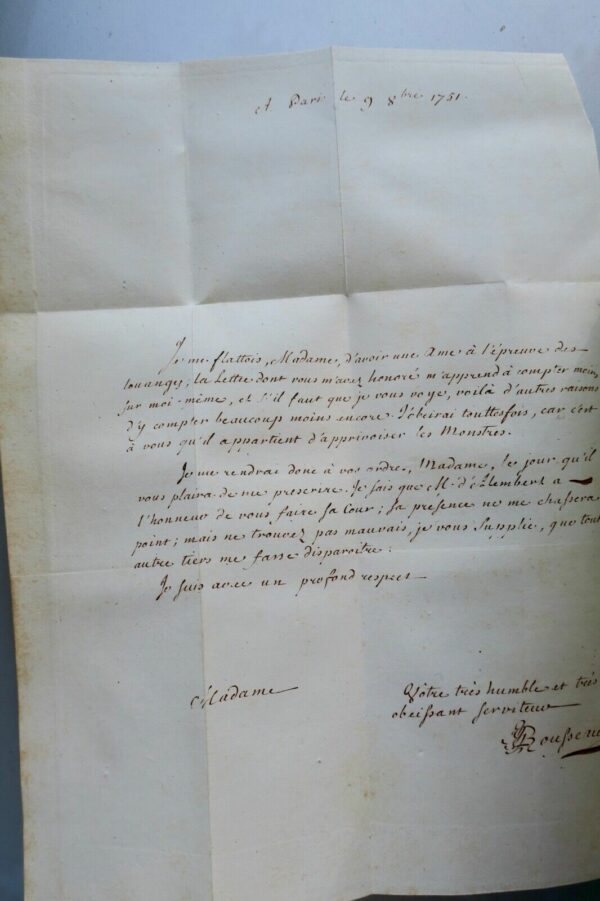 A Paris le 9 8bre 1751.
Je me flattois, Madame, d'avoir une Ame à l'épreuve des
louanges; la Lettre dont vous m'avez honoré m'apprend à compter moins
sur moi-même, et s'il faut que je vous voye, voilà d'autres raisons
d'y compter beaucoup moins encore. J'obéirai touttesfois, car c'est
à vous qu'il appartient d'apprivoiser les Monstres.
Je me rendrai donc à vos ordres, Madame, le jour qu'il
vous plaira de me prescrire. Je sais que M. d'Alembert a
l'honneur de vous faire sa Cour; sa présence ne me chassera
point; mais ne trouvez pas mauvais, je vous supplie, que tout
autre tiers me fasse disparoitre.
Je suis avec un profond respect
Madame
Vôtre très humble et très
obeissant serviteur
JJRousseau